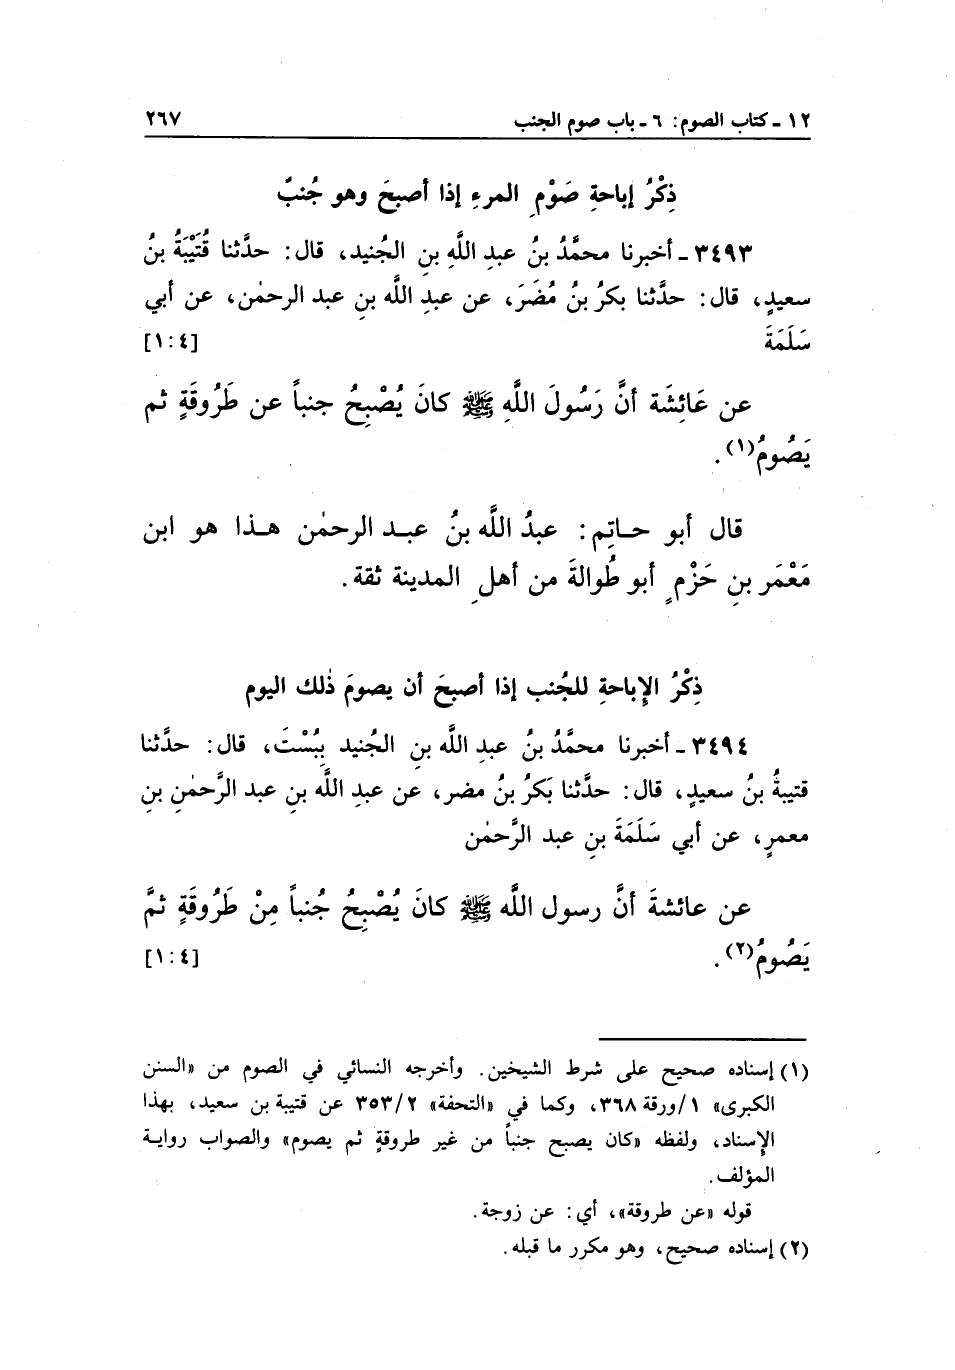 ١٢ ـ كتاب الصوم: ٦ ـ باب صوم الجنب ٢٦٧
ذِكْرُ إباحةِ صَوْمِ المرءِ إذا أصبحَ وهو جُنبٌ
٣٤٩٣ ـ أخبرنا محمَّدُ بنُ عبدِ اللَّهِ بنِ الجُنيد، قال: حدَّثنا قُتَيْبَةُ بنُ
سعيدٍ، قال: حدَّثنا بكرُ بنُ مُضَرَ، عن عبدِ الله بنِ عبد الرحمٰن، عن أبي
سَلَمَةَ [١:٤]
عن عَائِشَة أنَّ رَسُولَ اللَّهِ ﷺ كانَ يُصْبِحُ جنباً عن طَرُوقَةٍ ثم
يَصُومُ(١).
قال أبو حاتِم: عبدُ اللَّه بنُ عبد الرحمٰن هذا هو ابن
مَعْمَر بنِ حَزْمٍ أبو طُوالةَ من أهلِ المدينة ثقة.
ذِكْرُ الإباحةِ للجُنب إذا أصبحَ أن يصومَ ذٰلك اليوم
٣٤٩٤ ـ أخبرنا محمَّدُ بنُ عبدِ اللَّه بنِ الجُنيد بِبُسْتَ، قال: حدَّثنا
قتيبةُ بنُ سعيدٍ، قال: حدَّثنا بَكرُ بنُ مضر، عن عبدِ اللَّه بنِ عبد الرَّحمٰنِ بنِ
معمرٍ، عن أبي سَلَمَةَ بنِ عبد الرَّحمٰن
عن عائشةَ أنَّ رسول اللَّه ﷺ كانَ يُصْبِحُ جُنباً مِنْ طَرُوقَةٍ ثمَّ
يَصُومُ(٢). [١:٤]
(١) إسناده صحيح على شرط الشيخين. وأخرجه النسائي في الصوم من «السنن
الكبرى» ١/ورقة ٣٦٨، وكما في «التحفة» ٣٥٣/٢ عن قتيبة بن سعيد، بهذا
الإسناد، ولفظه «كان يصبح جنباً من غير طروقةٍ ثم يصوم» والصواب رواية
المؤلف.
قوله «عن طروقة»، أي: عن زوجة.
(٢) إسناده صحيح، وهو مكرر ما قبله.